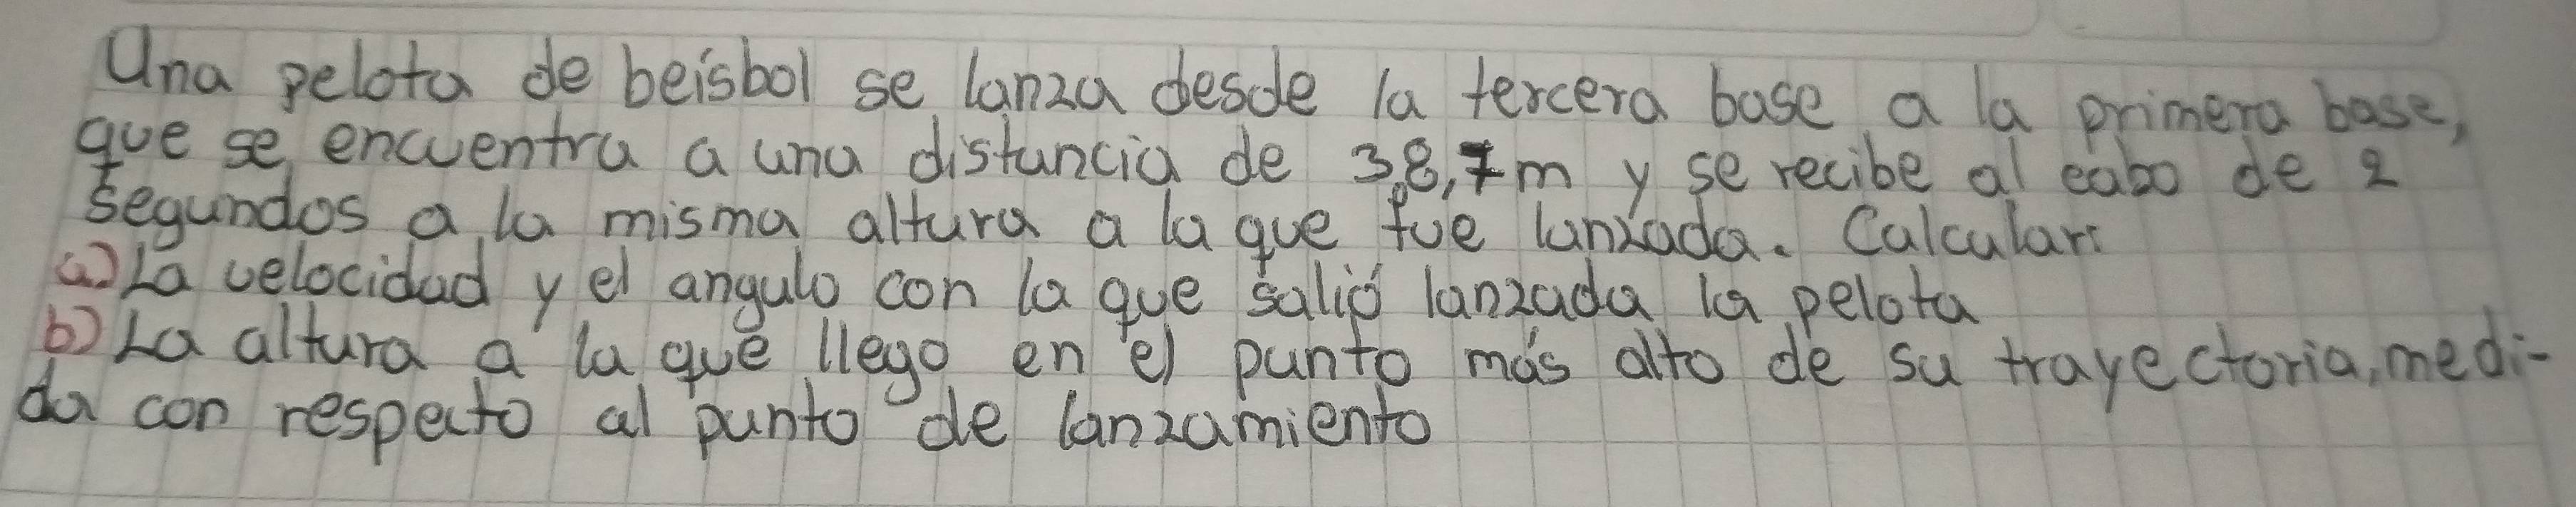 Una pelota de beisbol se lanza desde la tercera base a la primera base,
que se encuentra a una distancia de 38,7m y se recibe al cabo de 2
segundos a la misma altura a la que fue lanzada. Calcular:
a) La velocidad y el angulo con la que salió lanzada la pelota
b) La altura a la que llego en el punto más alto de su trayectoria, medi-
da con respecto al punto de lanzamiento